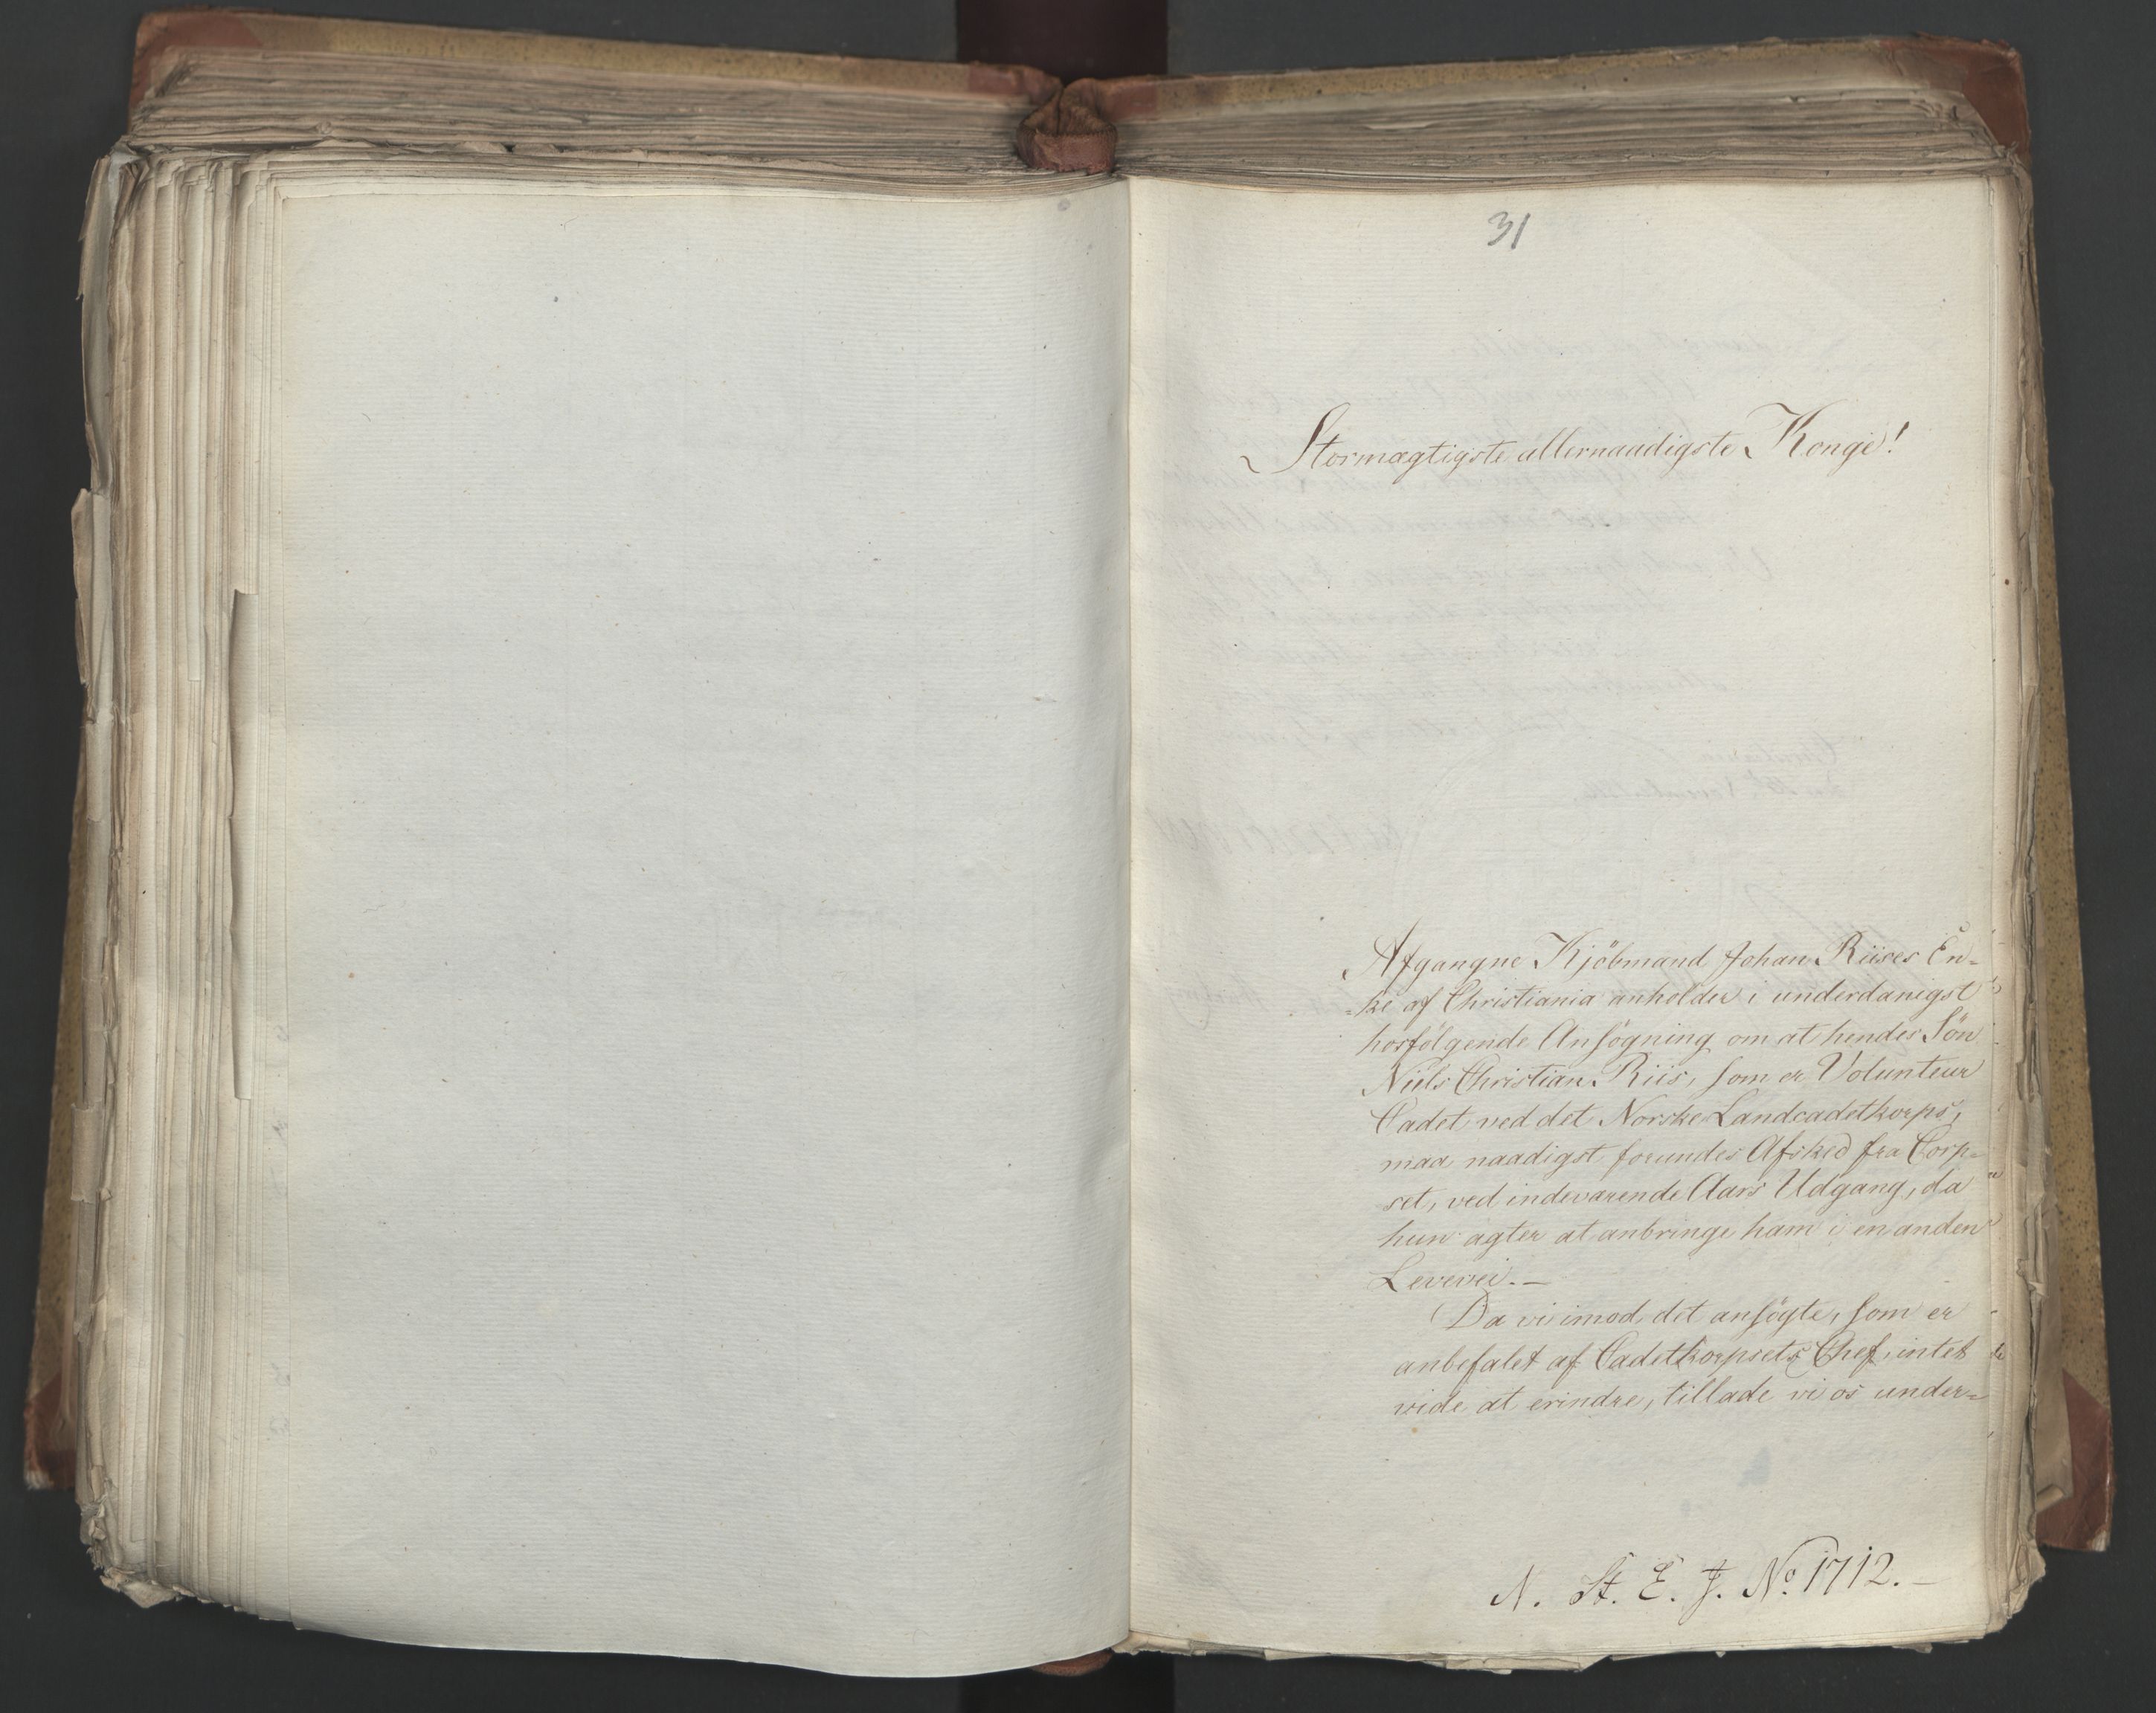 31
Stormægtigste allernaadigste Konge!
Afgangne Kjöbmand Johan Riises En-
-ke af Christiania anholder i underdanigst
hosfölgende Ansögning om at hendes Sön
Niels Christian Riis, som er Volunteur
Cadet ved det Norske Landcadetkorps,
maa naadigst forundes Afsked fra Corp-
set, ved indeværende Aars Udgang, da
hun agter at anbringe ham i en anden
Levevei. —
Da vi imod det ansögte, som er
anbefalet af Cadetkorpsets Chef, intet
vide at erindre, tillade vi os under-
N. St. E. J. No. 1712. —